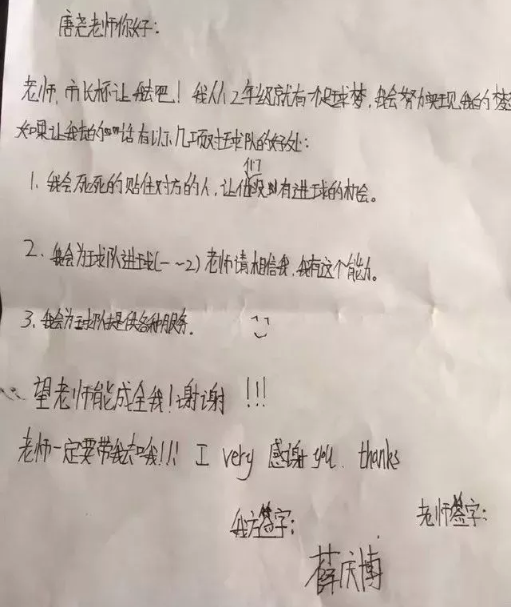 唐尧老师你好:
老师,市长杯让我去吧!我从2年级就有个足球梦,我会努力实现我的梦
如果让我去的话有以下几项对球队的好处:
1. 我会死死的贴住对方的人,让他们没有进球的机会。
2. 我会为球队进球(一~2)老师请相信我,我有这个能力。
3. 我会为球队提供各种服务.
望老师能成全我!谢谢 !!!
老师一定要带我去哦!!! I very 感谢 you. thanks
我方签字: 老师签字:
薛庆博